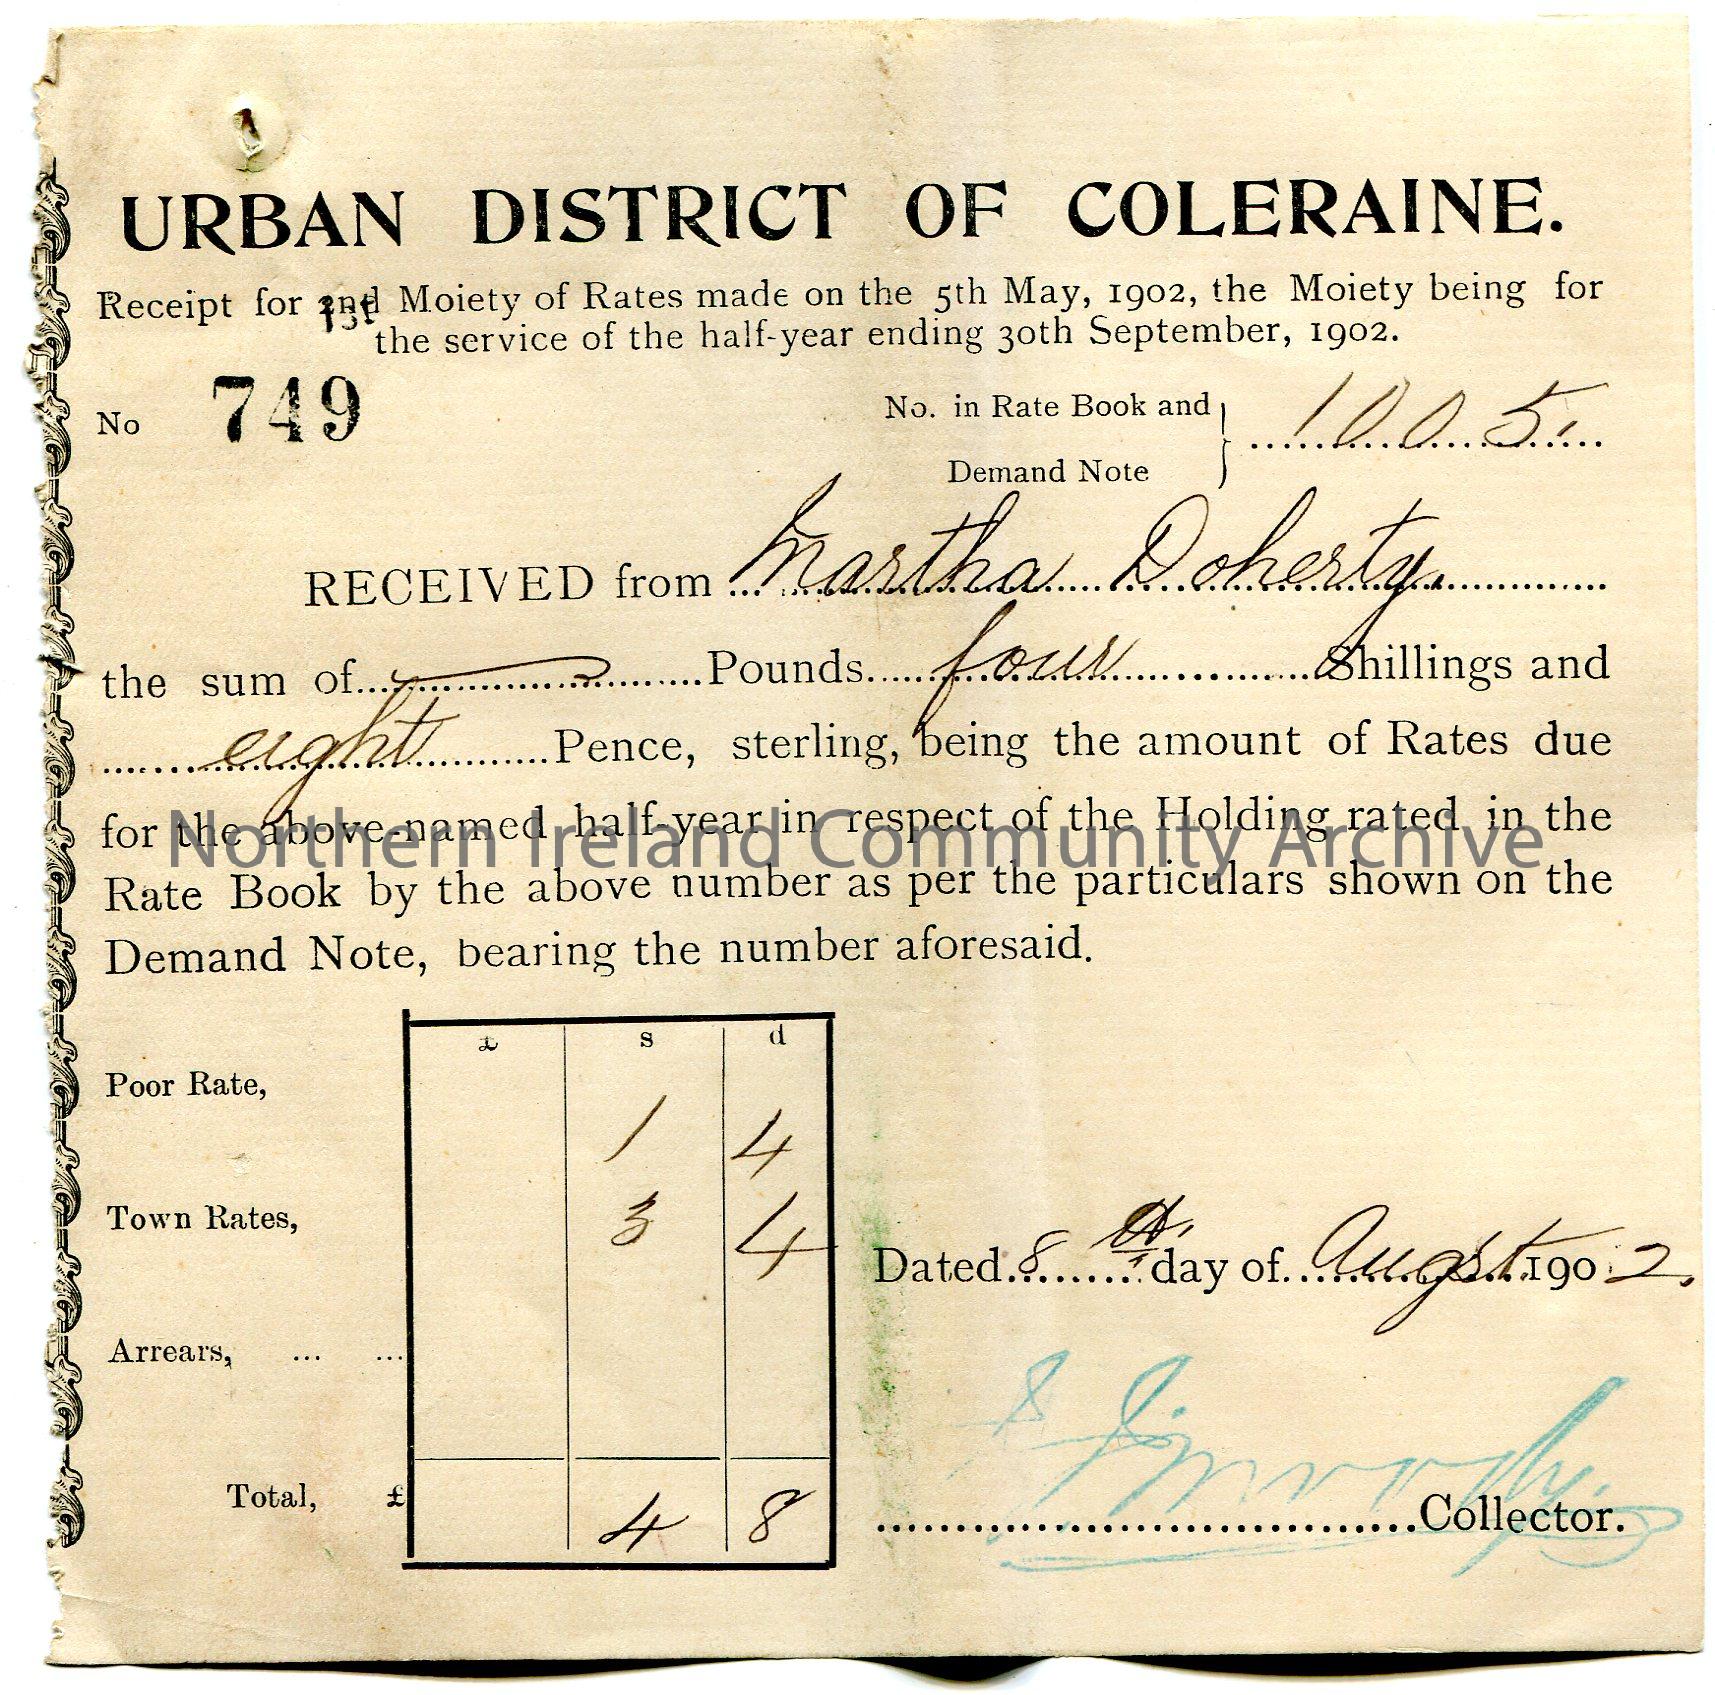 URBAN DISTRICT OF COLERAINE.
Receipt for 2nd 1st Moiety of Rates made on the 5th May, 1902, the Moiety being for
the service of the half-year ending 30th September, 1902.
No 749
No. in Rate Book and
Demand Note } 1005.
RECEIVED from Martha Doherty.
the sum of Pounds four Shillings and
eight Pence, sterling, being the amount of Rates due
for the above-named half-year in respect of the Holding rated in the
Northern Ireland Community Archive
Rate Book by the above number as per the particulars shown on the
Demand Note, bearing the number aforesaid.
£ s d
Poor Rate, 1 4
Town Rates, 3 4
Dated 8th day of Augst 1902.
Arrears, ... ...
Total, £ 4 8
Collector.